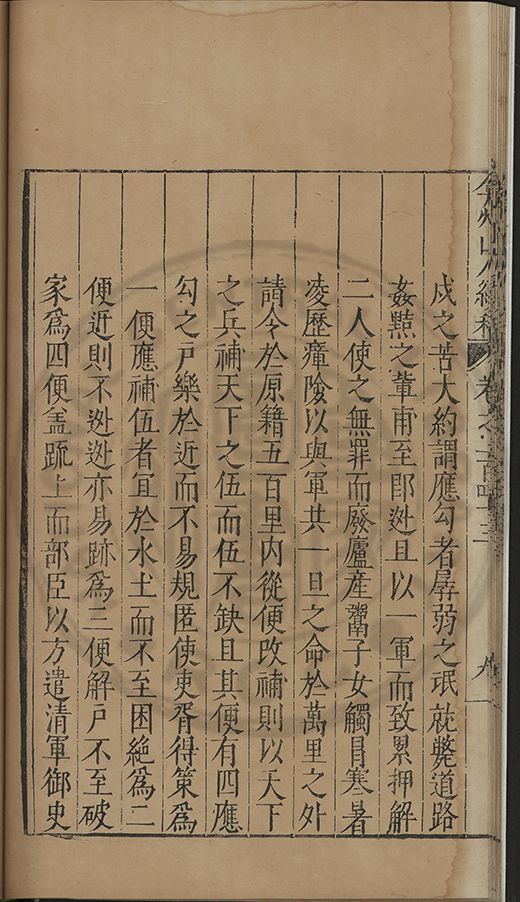 弇州山人續稿 卷之一百四十三 九
戍之苦大約謂應勾者孱弱之氓就斃道路
姦黠之輩甫至即迯且以一軍而致累押解
二人使之無罪而廢廬產鬻子女觸冒寒暑
凌歷瘴險以與軍共一旦之命於萬里之外
請令於原籍五百里內從便改補則以天下
之兵補天下之伍而伍不缺且其便有四應
勾之戶樂於近而不易規匿使吏胥得策為
一便應補伍者宜於水土而不至困絕為二
便近則不迯迯亦易跡為三便解戶不至破
家為四便盖疏上而部臣以方遣清軍御史